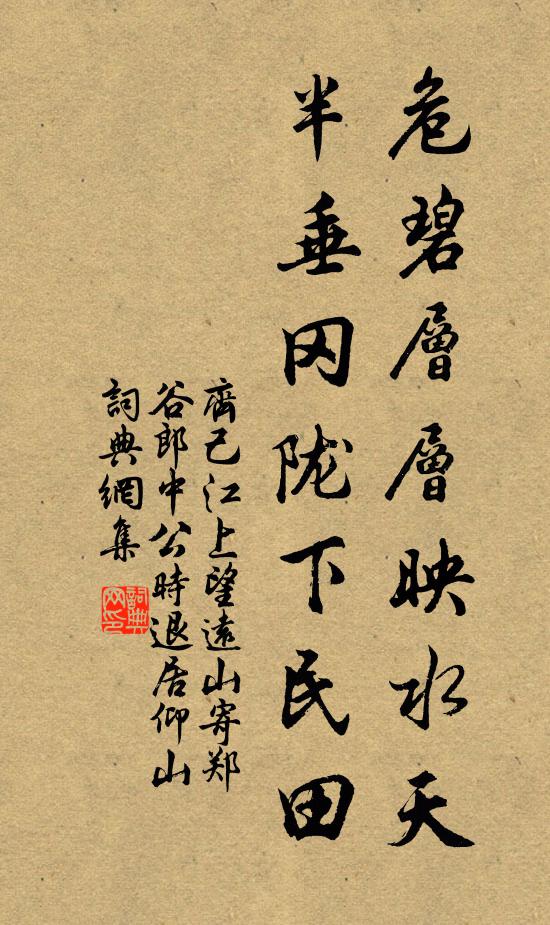 危碧層層映水天
半垂冈陇下民田
齊己江上望遠山寄郑
谷郎中公時退居仰山
詞典網集
詞典
网印